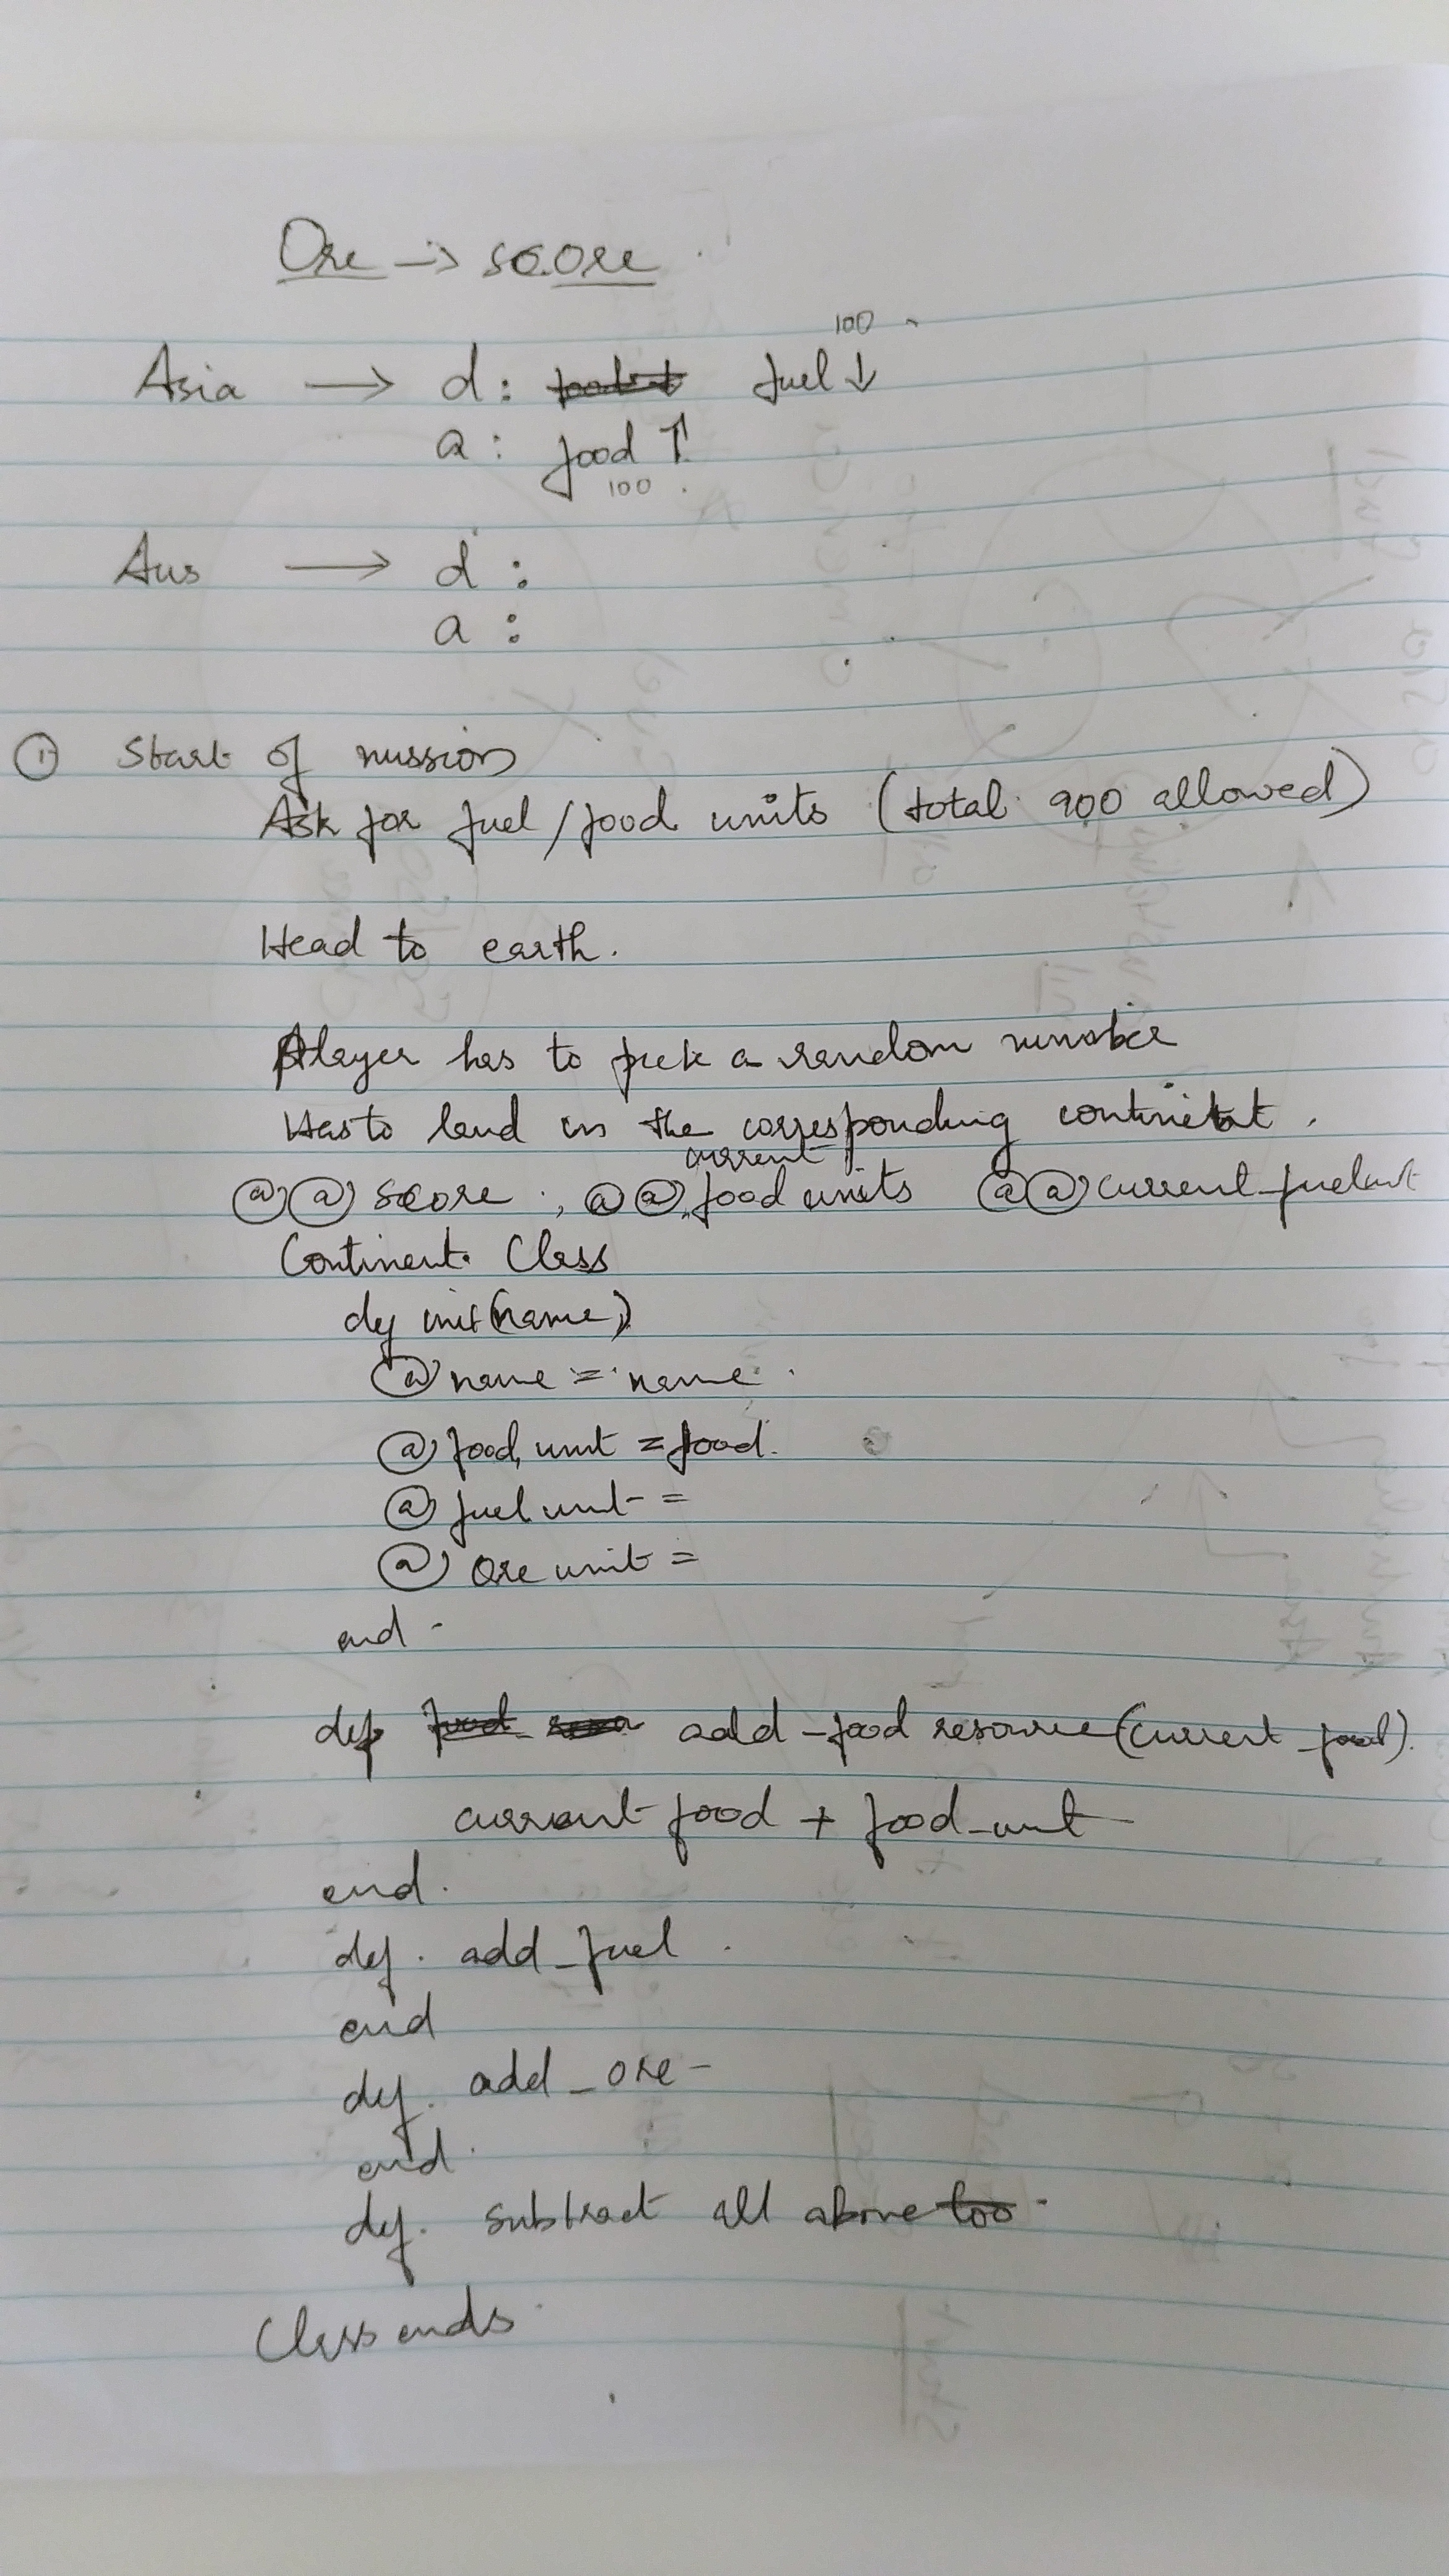 Ore -> score
100
Asia -> d: fuel ↓
a: food ↑
100
Aus -> d:
a:
① Start of mission
Ask for fuel/food units (total 900 allowed)
Head to earth.
Player has to pick a random number
Has to land in the corresponding continent.
current
@@ score ; @@ food units @@ current_fuel unit
Continent Class
def init(name)
@ name = name.
@ food unit = food.
@ fuel unit =
@ Ore unit =
end
def add_food resource (current_food).
current food + food_unit
end.
def. add_fuel.
end
def. add_ore
end.
def. subtract all above too.
Class ends